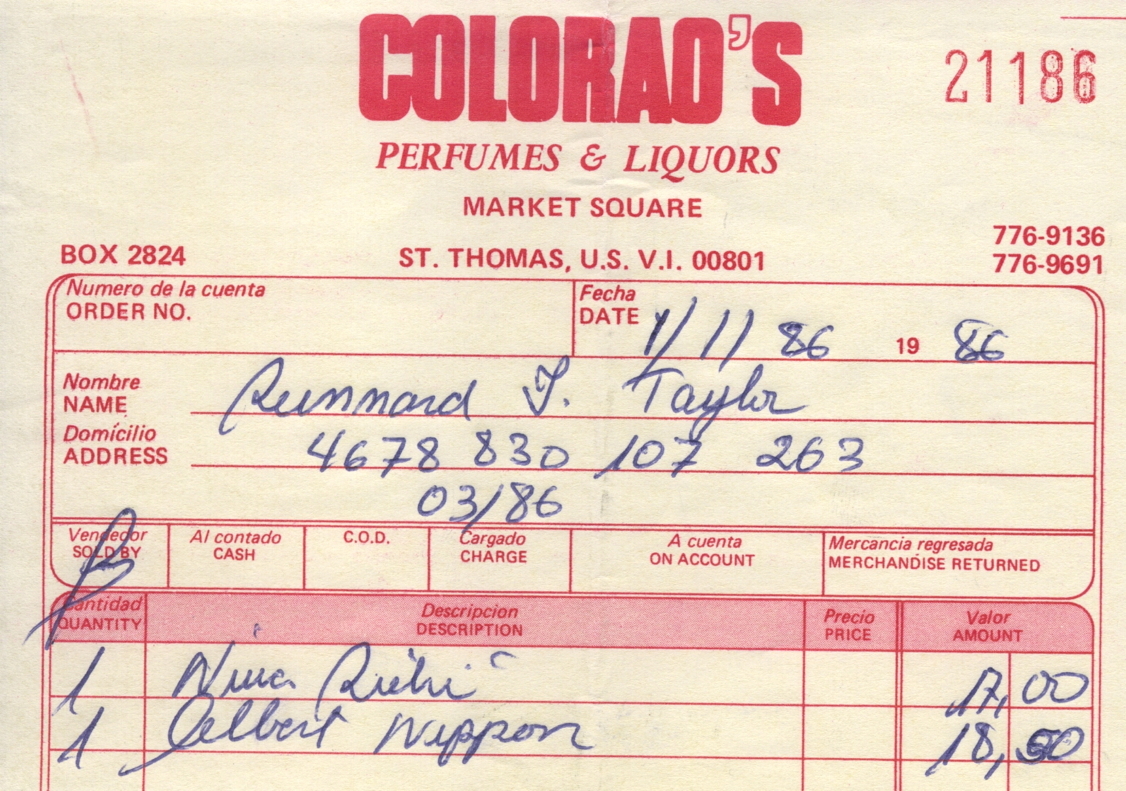 COLORAO'S
21186
PERFUMES & LIQUORS
MARKET SQUARE
776-9136
BOX 2824 ST. THOMAS, U.S. V.I. 00801 776-9691
Numero de la cuenta
ORDER NO.
Fecha
DATE 1/11 86 19 86
Nombre
NAME Runnard J. Taylor
Domicilio
ADDRESS 4678 830 107 263
03/86
Vendedor
SOLD BY
Al contado
CASH
C.O.D.
Cargado
CHARGE
A cuenta
ON ACCOUNT
Mercancia regresada
MERCHANDISE RETURNED
Cantidad
QUANTITY
Descripcion
DESCRIPTION
Precio
PRICE
Valor
AMOUNT
1 Nina Richi 17,00
1 Albert Nippon 18,50